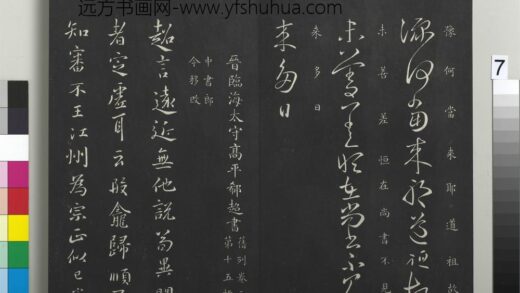 远方书画网-www.yfshuhua.com
7
豫何當來耶道祖故
源何當來耶道祖故
未善差恒在尚書不見
未善差恒在尚書不見
來多日
來多日
晉臨海太守高平郗超書
舊列卷
第十五
中書郎
今移改
超言遠近無他說苟異聞
者定虛耳云殷龕歸順
知審不王江州為宗正似已